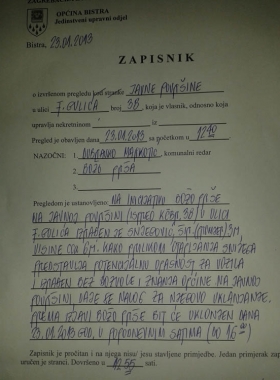 OPĆINA BISTRA
Jedinstveni upravni odjel
Bistra, 23.01.2013
ZAPISNIK
o izvršenom pregledu JAVNE POVRŠINE
u ulici F. GULIĆA broj 38, koja je vlasnik, odnosno koja
upravlja nekretninom
Pregled je obavljen dana 23.01.2013 sa početkom u 12
NAZOČNE: 1. , komunalni redar
2. BOŽO
3.
Pregledom je ustanovljeno NA BOŽO
NA JAVNOJ POVRŠINI ISPRED 38 U ULICI
F. GULIĆA JE SNJEGOVIĆ 3M,
VISINE CCA 6M. KAKO PRILIKOM OTAPANJA SNIJEGA
PREDSTAVLJA POTENCIJALNU OPASNOST ZA VOZILA
I BEZ DOZVOLE I ZNANJA OPĆINE NA JAVNOJ
POVRŠINI DAJE SE NALOG ZA NJEGOVO UKLANJANJE.
PREMA IZJAVI BOŽO BIT ĆE UKLONJEN DANA
23.01.2013 GOD. U POPODNEVNIM SATIMA (DO 16
Zapisnik je pročitan i na njega nisu jesu stavljene primjedbe. Jedan primjerak zap
uručen je stranci. Dovršeno u 12 55 sati.